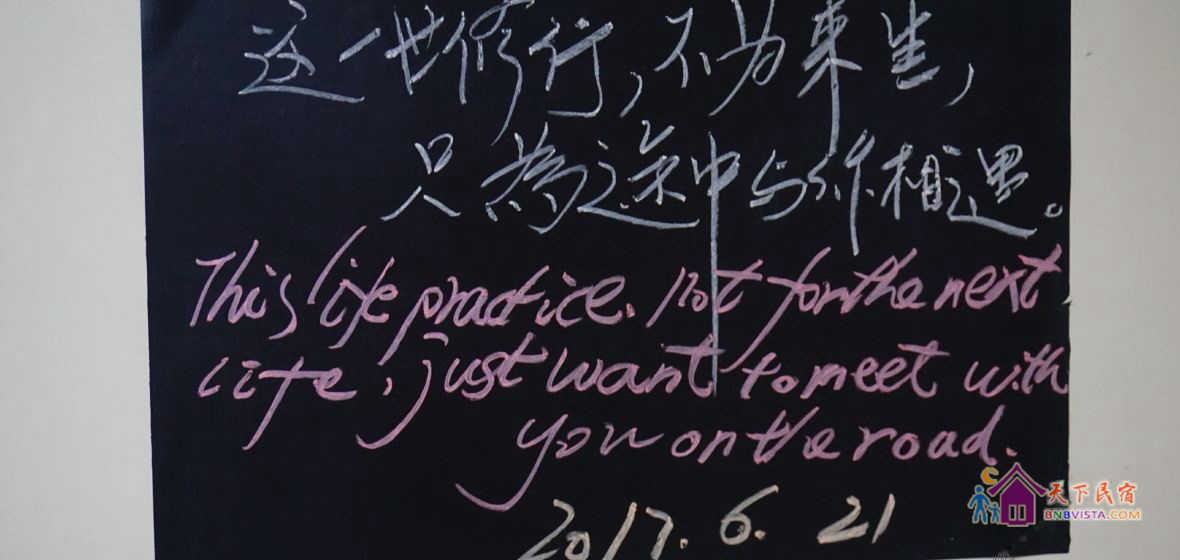 这一世修行，不为来生，
只為途中与你相遇。
This life practice. not for the next
life, just want to meet with
you on the road.
2017.6.21
天下民宿
BNBVISTA.COM